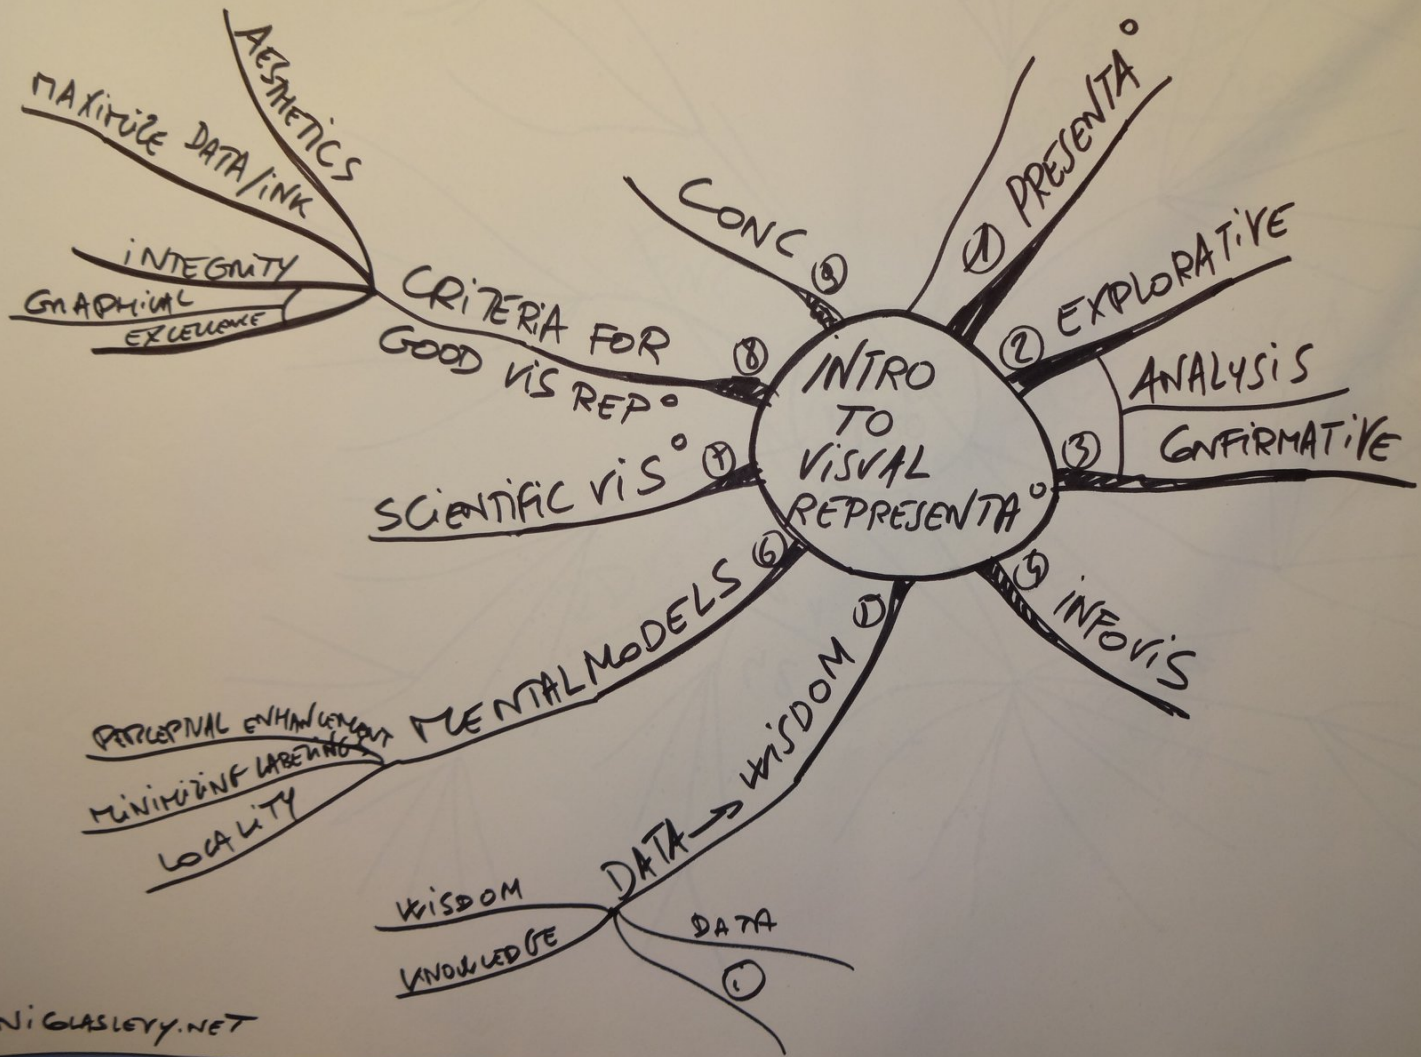 INTRO
TO
VISUAL
REPRESENTA°
① PRESENTA°
② EXPLORATIVE
ANALYSIS
③ CONFIRMATIVE
INFOVIS
DATA → WISDOM
DATA
ⓘ
KNOWLEDGE
WISDOM
⑥ MENTAL MODELS
PERCEPTUAL ENHANCEMENT
MINIMIZING LABELING
LOCALITY
⑦ SCIENTIFIC VIS°
⑧ CRITERIA FOR
GOOD VIS REP°
AESTHETICS
MAXIMIZE DATA/INK
INTEGRITY
GRAPHICAL
EXCELLENCE
CONC ⑨
NICOLASLEVY.NET